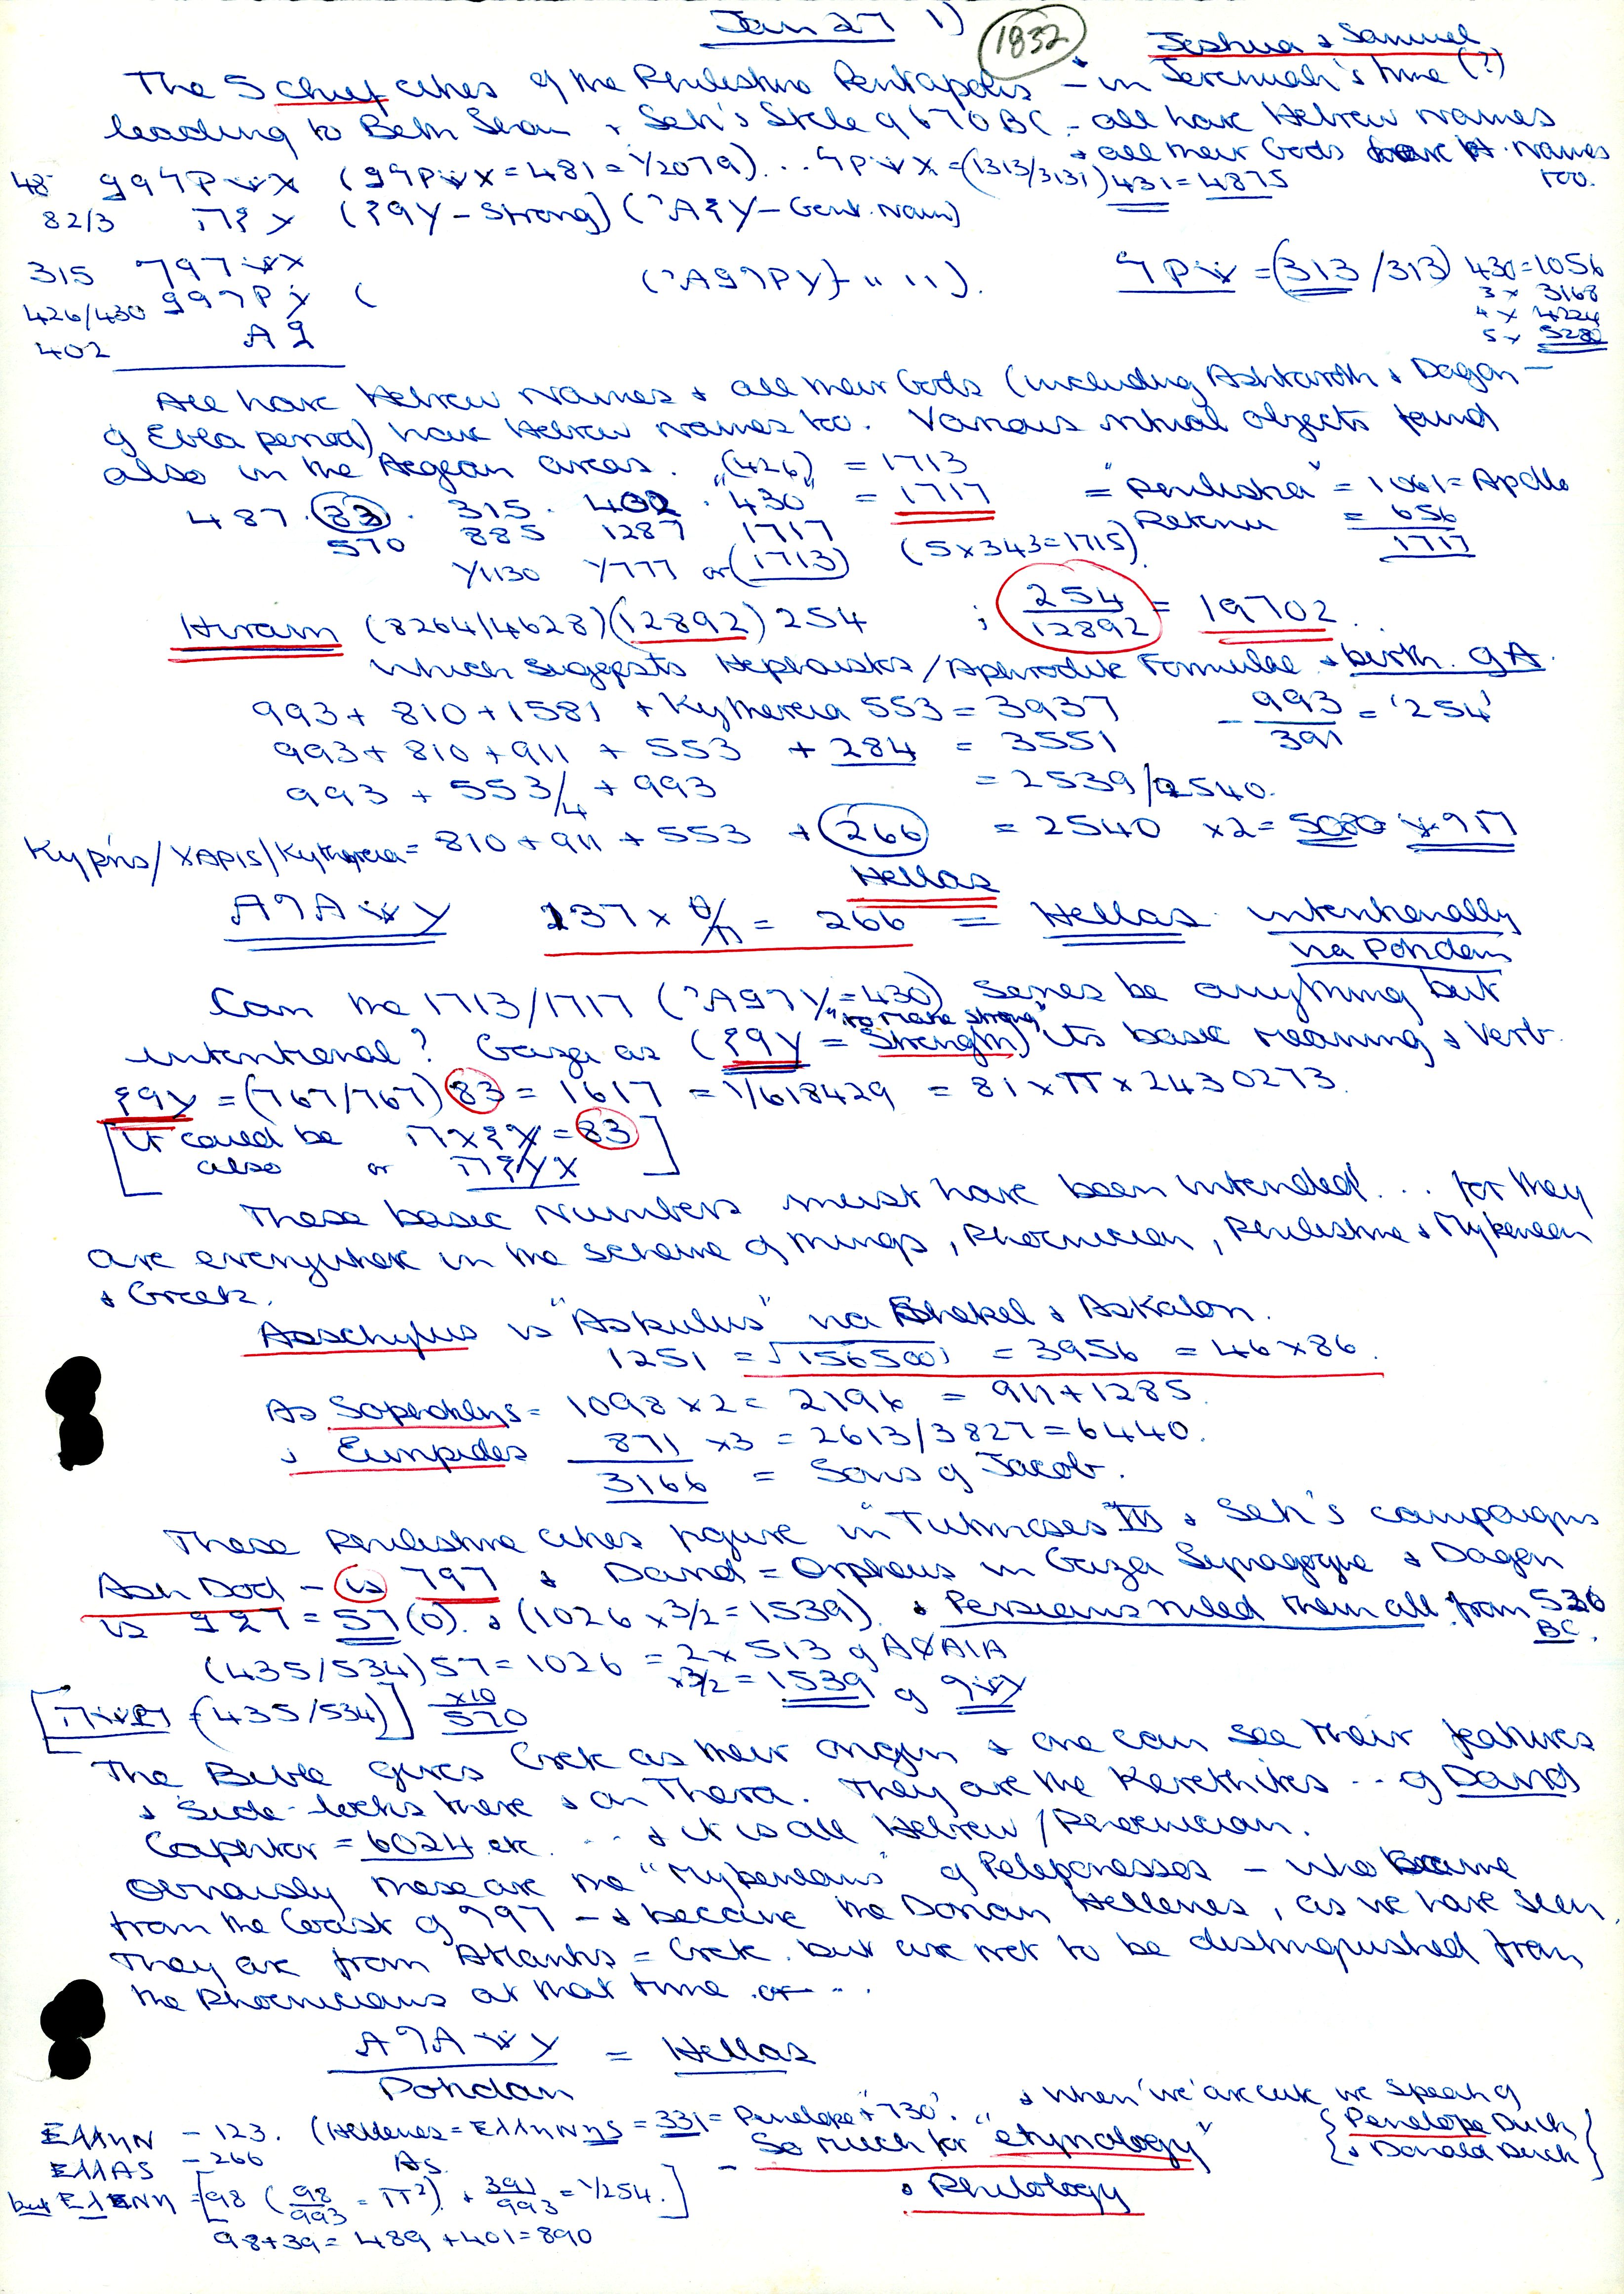 Jan 27 1) 1832
Joshua & Samuel
The 5 chief cities of the Philistine Pentapolis - in Jeremiah's time (?)
leading to Beth Shan & Seti's Stele of 670 BC - all have Hebrew Names
& all their Gods have H. Names too.
(Strong) (Gent. Noun)
82/3
315
426/430
402
= (313/313) 430 = 1056
3 x 3168
4 x 4224
5 x 5280
All have Hebrew Names & all their Gods (including Ashtaroth & Dagon -
of Ebla period) have Hebrew Names too. Various ritual objects found
also in the Aegean areas. "(426)" = 1713
487 . 83 . 315 . 402 . "430" = 1717 = "Philistia" = 1061 = Apollo
570 885 1287 1717 Retenu = 656
1717
Y1130 Y777 or (1713) (5x343=1715)
Hiram (8264/4628) (12892) 254 ; 254/12892 = 19702
which suggests Hephaistos/Aphrodite Formulae & birth of A.
993 + 810 + 1581 + Kythereia 553 = 3937 - 993/391 = '254'
993 + 810 + 911 + 553 + 284 = 3551
993 + 553/4 + 993 = 2539/2540.
Kypris/XAPIS/Kythereia = 810 + 911 + 553 + 266 = 2540 x2 = 5080
Hellas
= 266 = Hellas intentionally
via Potidan
Can the 1713/1717 (=430) series be anything but
"to make strong"
intentional? Gaza as (= Strength) its basic meaning & verb.
= (767/767) 83 = 1617 = 1/618429 = 81 x π x 2430273.
[It could be = 83
also or ]
These basic Numbers must have been intended ... for they
are everywhere in the scheme of things, Phoenician, Philistine & Mykenean
& Greek.
Aeschylus is "Askulus" via Shekel & Askalon.
1251 = √156500) = 3956 = 46 x 86.
As Sophoklys = 1098 x 2 = 2196 = 911 + 1285.
& Euripides 871 x3 = 2613/3827 = 6440.
3166 = Sons of Jacob.
These Philistine cities figure in "Tutmoses III & Seti's campaigns
Ash Dod - is 797 & David = Orpheus in Gaza Synagogue & Dagon
is 927 = 57(0). & (1026 x 3/2 = 1539) & Persians ruled them all from 530
BC.
(435/534) 57 = 1026 = 2 x 513 of AXAIA
x3/2 = 1539 of
(435/534)] x10
570
The Bible gives Crete as their origin & one can see their features
& side-locks there & on Thera. They are the Kerethites .. of David
Caphtor = 6024 etc ... & it is all Hebrew/Phoenician.
Obviously these are the "Mykeneans" of Peleponesses - who came
from the Coast of 797 - & became the Dorian Hellenes, as we have seen.
They are from Atlantis = Crete. but are not to be distinguished from
the Phoenicians at that time of ...
= Hellas
Potidan
& when 'we' are cute we speak of
{Penelope Duck
& Donald Duck}
Ελληn - 123. (Hellenes = Ελληnηs = 331 = Penelope + '730'.
ΕλλAS - 266 As
- So much for "etynology"
& Philology
but [98 (98/993 = π²) + 391/993 = 1/254.]
98+39 = 489 + 401 = 890